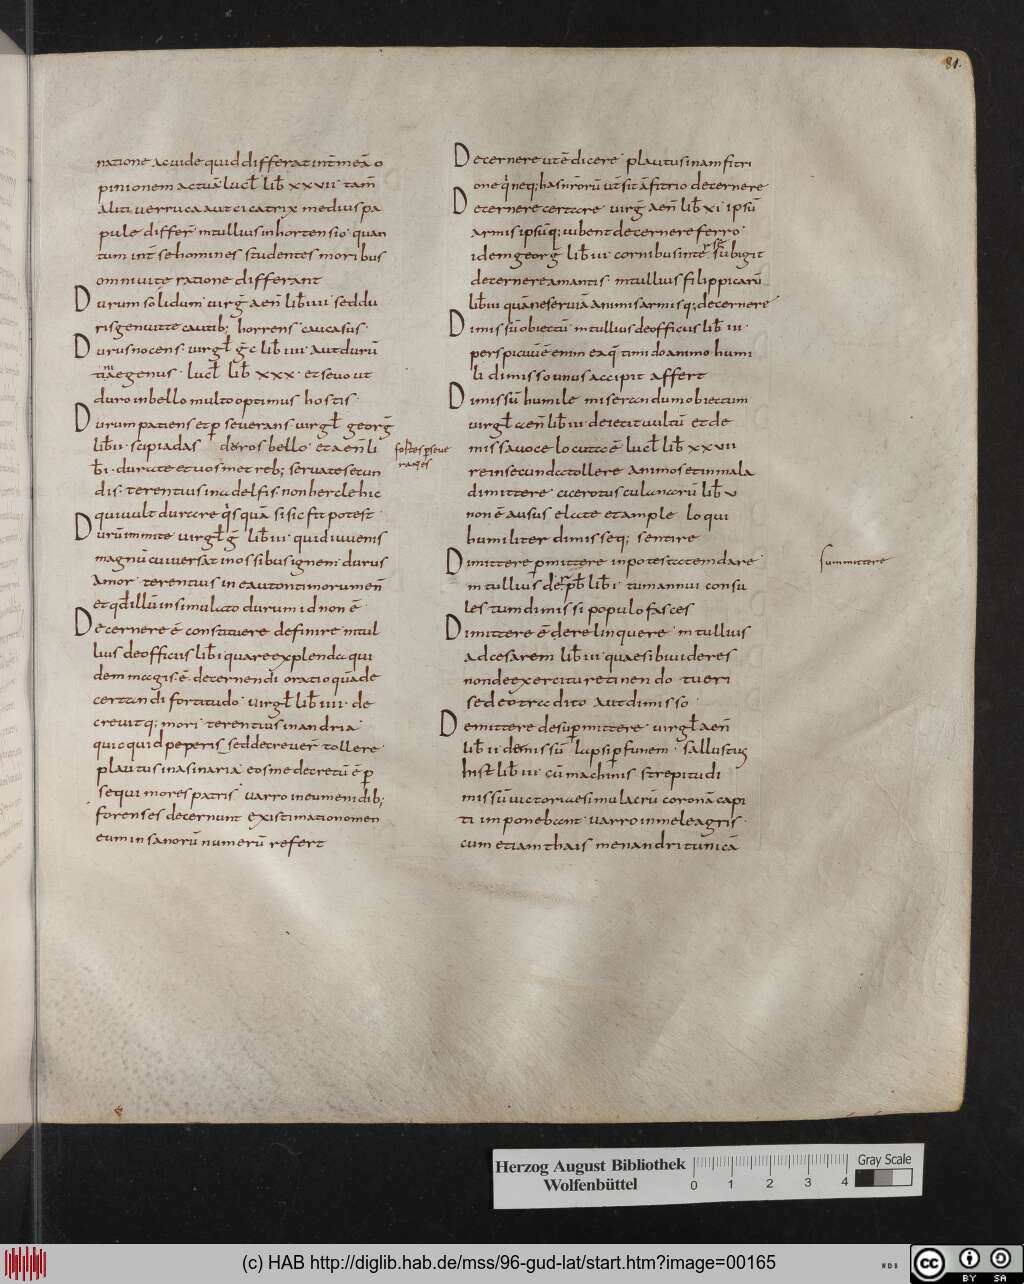 81.
natione ac uide quid differat int̄ meā o
pinionem ac tuā lucl̄ lib̄ xxvii tam̄
aliti uerruca aut cicatrix medius pa
pule differ mtullius inhortensio quan
tum int̄ se homines studentes moribus
omni uite ratione differant
Durum solidum uirḡ aen̄ lib̄ iiii sed du
ris genuit te cautib; horrens caucasus
Durus nocens uirgl̄ ḡc lib̄ iiii aut durū
egenus lucl̄ lib̄ xxx et seuo ut
duro in bello multo optimus hostis
Durum patiens et p seuerans uirgl̄ georḡ
lib̄ ii scipiadas deros bello et aen̄ li
b̄ i durate et uosmet reb; seruate secun
dis terentius in adelfis non hercle hic
qui uult durare q̄s quā si sic fit potest
Durū inmite uirgl̄ ḡ lib̄ iii quid iuuenis
magnū cui uersat in ossibus ignem durus
amor terentius in eautontimorumen̄
et qd̄ illū insimulato durum id non ē
Decernere ē constituere definire mtul
lius de officiis lib̄ i quare explenda qui
dem magis ē decernendi oratio quā de
certandi fortitudo uirgl̄ lib̄ iiii de
creuitq; mori terentius in andria
quicquid peperis sed decreuer̄ tollere
plautus in asinaria eosme decretū ē p
sequi mores patris uarro in eumenidib;
forenses decernunt existimationomen
eum in sanorū numerū refert
fortes pseue
rantes
Decernere ut ē dicere plautus inamfitri
one q̄ neq; hac nr̄orū ut sit āfitrio decernere
Decernere certare uirḡ aen̄ lib̄ xi ipsū
armis ipsūq; iubent decernere ferro
idem georḡ lib̄ iii cornibus inter se subigit
decernere amantis mtullius filippicarū
lib̄ iii quā ne seruiā animis armisq; decernere
Dimissū obiectū mtullius de officiis lib̄ iii
perspicuū ē enim ea q̄ timido animo humi
li dimisso unus accipit affert
Dimissū humile miserandum obiectum
uirgl̄ aen̄ lib̄ iii deiecit uultū et de
missa uoce locuta ē lucl̄ lib̄ xxvii
re in secunda tollere animos et in mala
dimittere cicero tusculanarū lib̄ v
non ē ausus elate et ample loqui
humiliter dimisseq; sentire
Dimittere pmittere in potestatem dare
mtullius de r̄ pb̄ lib̄ i tum annui consu
les tum dimissi populo fasces
Dimittere ē derelinquere mtullius
ad cesarem lib̄ iii quae sibi uideres
non de exercitu retinendo tueri
sed eo tradito aut dimisso
Demittere desup mittere uirgl̄ aen̄
lib̄ ii demissū lapsi p funem sallustius
hist̄ lib̄ iii cū machinis strepitu di
missū uictoriae simulacrū coronā capi
ti imponebant uarro in meleagris
cum etiam thais menandri tunicā
summittere
Herzog August Bibliothek
Wolfenbüttel
0 1 2 3 4
Gray Scale
(c) HAB http://diglib.hab.de/mss/96-gud-lat/start.htm?image=00165
WDB
cc BY SA